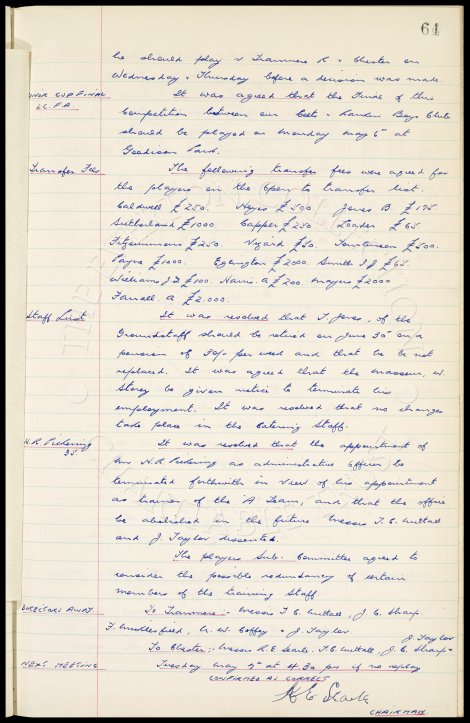 64
he should play v Tranmere R v Chester on
Wednesday & Thursday before a decision was made.
CUP FINAL It was agreed that the Final of this
LC.F.A. Competition between our Colts & Larkin Boys Club
should be played on Monday May 6th at
Goodison Park.
Transfer Fees The following transfer fees were agreed for
the players on the open to transfer list.
Caldwell £250. Hayes £500. Jones B. £175.
Sutherland £1000 Capper £250 Loader £65.
Fitzsimmons £250. Vizard £50. Tomlinson £500.
Payne £1000. Eglington £2000. Smith J.J £65.
Williams J.D £100. Harris. A £200. Mayers £2000
Farrall. A £2.000.
Staff List It was resolved that T Jones, of the
Groundstaff should be retired on June 30th on a
pension of 30/- per week and that he be not
replaced. It was agreed that the masseur, W
Storey be given notice to terminate his
employment. It was resolved that no changes
take place in the Catering Staff.
H.R. Pickering It was resolved that the appointment of
35 Mr H.R. Pickering as administrative Officer be
terminated forthwith in view of his appointment
as trainer of the A Team, and that the office
be abolished in the future. Messrs T.C. Nuttall
and J. Taylor dissented.
The players Sub-Committee agreed to
consider the possible redundancy of certain
members of the training Staff.
DIRECTORS AWAY To Tranmere:- Messrs T.C. Nuttall, J.C. Sharp.
F. Micklesfield, C. W. Coffey & J. Taylor
J. Taylor
To Chester:- Messrs R.E. Searle. T.C. Nuttall, J.C. Sharp
NEXT MEETING Tuesday May 7th at 4.30 pm if no replay
CONFIRMED AS CORRECT
R E Searle
CHAIRMAN.